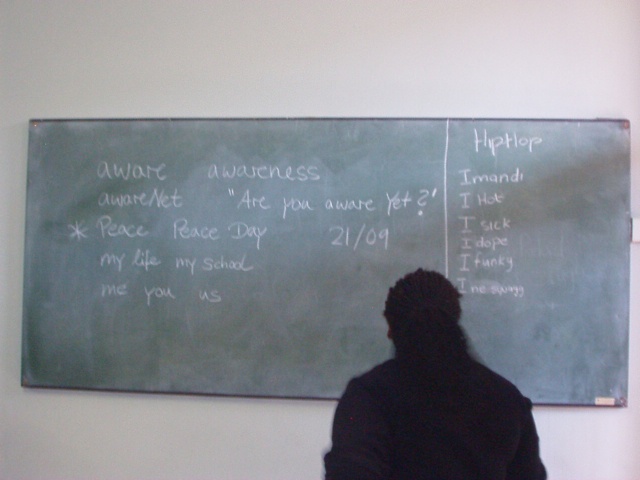 aware awareness
awareNet "Are you aware Yet?"
* Peace Peace Day 21/09
my life my school
me you us
HipHop
I mandi
I Hot
I sick
I dope
I funky
I ne swagg